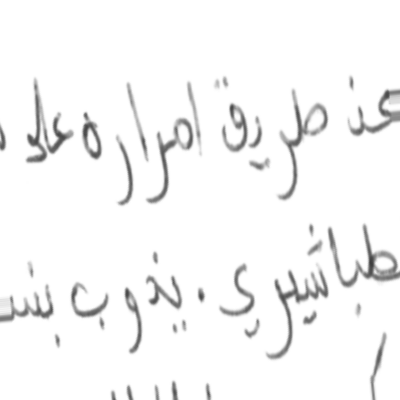 عن طريق امراره على
طباشيري. يذوب بنسـ